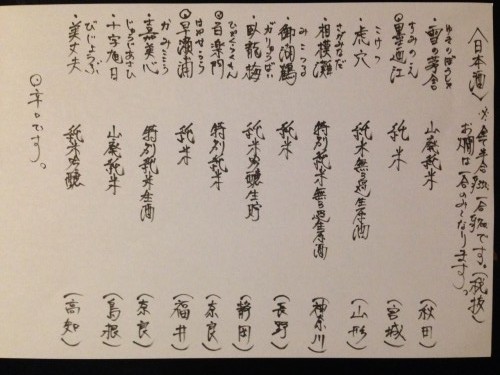 〈日本酒〉 ※全 半合 一合 です。(税抜)
お燗は一合のみとなります。
ゆきのぼうしゃ
・雪の茅舎 山廃純米 (秋田)
すみのえ
◎墨廼江 純米 (宮城)
こけつ
・虎穴 純米無濾過生原酒 (山形)
さがみなだ
・相模灘 特別純米無濾過生原酒 (神奈川)
みこつる
・御湖鶴 純米 (長野)
がりゅうばい
・臥龍梅 純米吟醸生貯 (静岡)
ひゃくらくもん
◎百楽門 特別純米 (奈良)
はやせうら
◎早瀬浦 純米 (福井)
かみこころ
・嘉美心 特別純米生酒 (奈良)
じゅうじあさひ
・十字旭日 山廃純米 (島根)
びじょうふ
・美丈夫 純米吟醸 (高知)
◎辛口です。